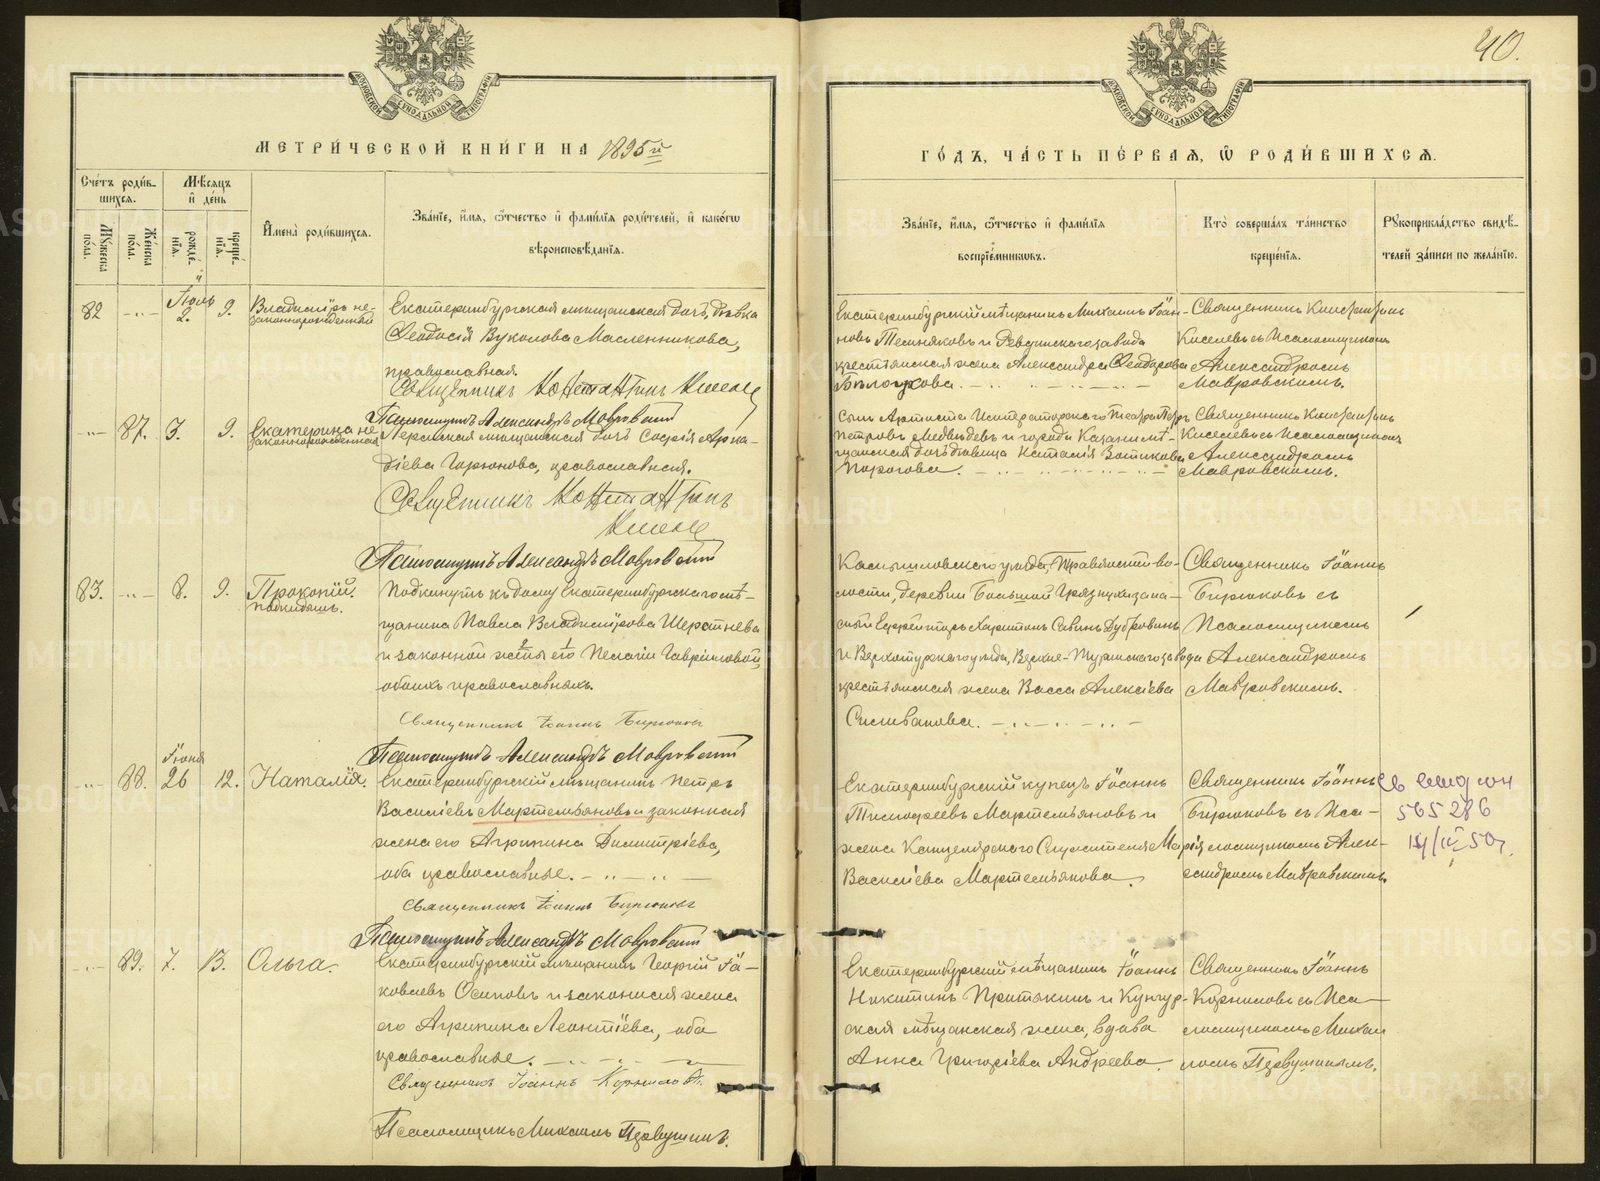 40.
МОСКОВСКОЙ СѴНОДАЛЬНОЙ ТИПОГРАФІИ
МОСКОВСКОЙ СѴНОДАЛЬНОЙ ТИПОГРАФІИ
МЕТРИ́ЧЕСКОЙ КНИ́ГИ НА 1895й
ГО́ДЪ, ЧА́СТЬ ПЕ́РВАЯ, Ѡ҆ РОДИ́ВШИХСЯ.
Сче́тъ роди́в-
шихся.
Мꙋ́жеска по́ла.
Же́нска по́ла.
Мѣ́сяцъ
и҆ де́нь
рожде́-
нїя.
креще́-
нїя.
И҆мена̀ роди́вшихся.
Зва́нїе, и҆́мя, ѻ҆́тчество и҆ фами́лїя роди́телей, и҆ како́гѡ
вѣроисповѣ́данїя.
Зва́нїе, и҆́мя, ѻ҆́тчество и҆ фами́лїя
воспрїе́мникѡвъ.
Кто̀ соверша́лъ та́инство
креще́нїя.
Рꙋкоприкла́дство свидѣ́-
телей за́писи по жела́нїю.
82 – „ – Іюль 2. 9. Владиміръ не-
законнорожденный
Екатеринбургская мѣщанская дочь, дѣвка
Ѳеодосія Вуколова Масленникова,
православная.
Священникъ Константинъ
Псаломщикъ Александръ Мавровскій
Екатеринбургскій мѣщанинъ Михаилъ Іоан-
новъ Темняковъ и Ревдинскаго завода
крестьянская жена Александра Ѳеодорова
Священникъ Константинъ
Киселевъ съ Псаломщикомъ
Александромъ
Мавровскимъ.
– „ – 87. 3. 9. Екатерина не-
законнорожденная
мѣщанская дочь Софія Арка-
діева Горюнова, православная.
Священникъ Константинъ
Псаломщикъ Александръ Мавровскій
Сынъ Артиста Императорскаго Театра Петръ
Петровъ Медвѣдевъ и города Казани мѣ-
щанская дочь дѣвица Наталія
Священникъ Константинъ
Киселевъ съ Псаломщикомъ
Александромъ
Мавровскимъ.
83. – „ – 8. 9. Прокопій.
подкидышъ.
Подкинутъ къ дому Екатеринбургскаго мѣ-
щанина Павла Владимірова Шерстнева
и законной жены его Пелагіи Гавриловой,
обоихъ православныхъ.
Священникъ Іоаннъ Бирюковъ
Псаломщикъ Александръ Мавровскій
Камышловскаго уѣзда, Травянской во-
лости, деревни Большой
Ефрейторъ Харитонъ Савинъ Дубровинъ
и Верхотурскаго уѣзда, Верхне-Туринскаго завода
крестьянская жена Васса Алексіева
Селиванова.
Священникъ Іоаннъ
Бирюковъ съ
Псаломщикомъ
Александромъ
Мавровскимъ.
– „ – 88. Іюня 26 12. Наталія.
Екатеринбургскій мѣщанинъ Петръ
Василіевъ Мартемьяновъ и законная
жена его Агрипина Димитріева,
оба православные.
Священникъ Іоаннъ Бирюковъ
Псаломщикъ Александръ Мавровскій
Екатеринбургскій купецъ Іоаннъ
Тимофеевъ Мартемьяновъ и
жена Канцелярскаго Служителя Марія
Василіева Мартемьянова.
Священникъ Іоаннъ
Бирюковъ съ Пса-
ломщикомъ Алек-
сандромъ Мавровскимъ.
565286
– „ – 89. 7. 13. Ольга.
Екатеринбургскій мѣщанинъ Георгій Іа-
ковлевъ Осиповъ и законная жена
его Агрипина Леонтіева, оба
православные.
Священникъ Іоаннъ Корниловъ.
Псаломщикъ Михаилъ Первушинъ.
Екатеринбургскій мѣщанинъ Іоаннъ
Никитинъ Притыкинъ и Кунгур-
ская мѣщанская жена, вдова
Анна Григоріева Андреева.
Священникъ Іоаннъ
Корниловъ съ Пса-
ломщикомъ Михаи-
ломъ Первушинымъ.
METRIKI.GASO-URAL.RU